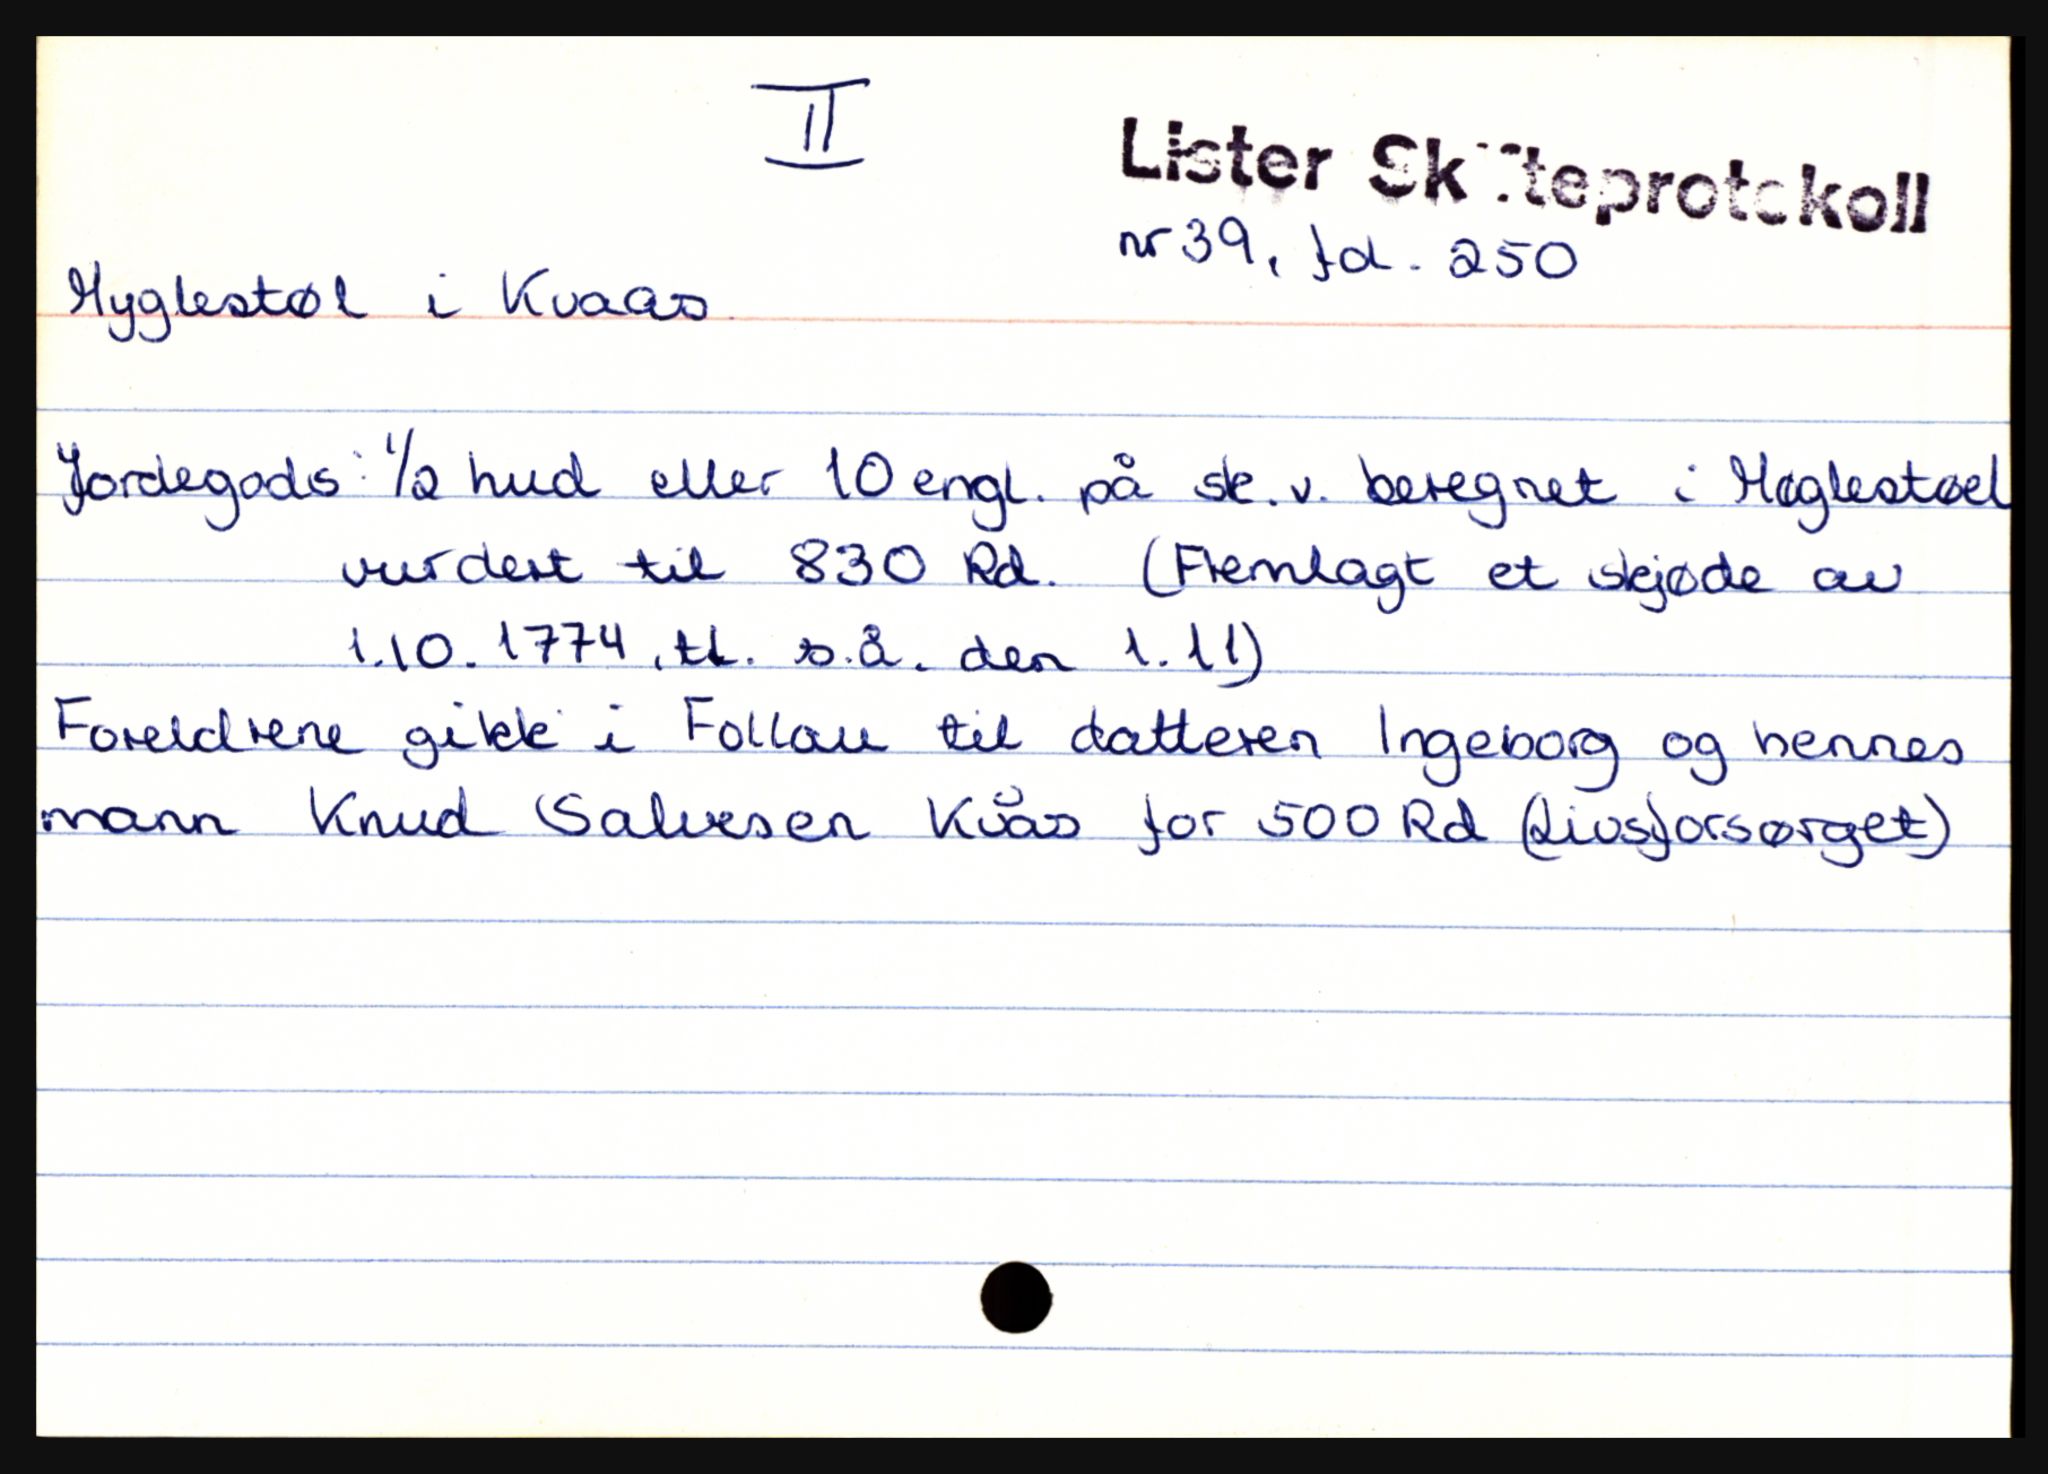 II
Lister Skifteprotokoll
nr 39, fol. 250
Hyglestøl i Kvaas.
Jordegods: 1/2 hud eller 10 engl. på sk. v. beregnet i Høglestøel
vurdert til 830 Rd. (Fremlagt et skjøde av
1.10.1774, tl. s.å. den 1.11)
Foreldrene gikk i Follau til datteren Ingeborg og hennes
mann Knud Salvesen Kvås for 500 Rd (Livsforsørget)